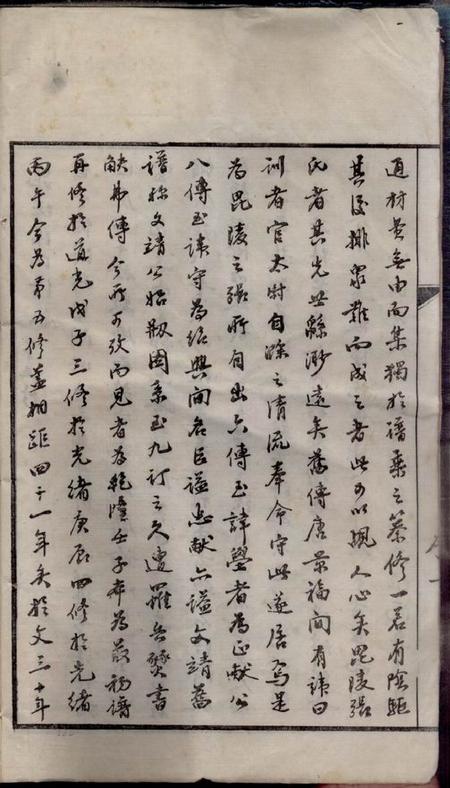 通材養無由而集獨於譜乘之纂修一若有陰驅
其後排眾難而成之者此可以觀人心矣毘陵張
氏者其先世緜渺遠矣舊傳唐景福間有諱曰
訓者官太尉自滁之清流奉命守此遂居焉是
為毘陵之張所自出六傳至諱舉者為正獻公
八傳至諱守為紹興間名臣謚忠獻亦謚文靖舊
譜稱文靖公始剙圖系至九訂之久遭羅兵燹書
缺弗傳今所可攷而見者為乾隆壬子本為最初譜
再修於道光戊子三修於光緒庚辰四修於光緒
丙午今為第五修蓋相距四十一年矣於文三十年